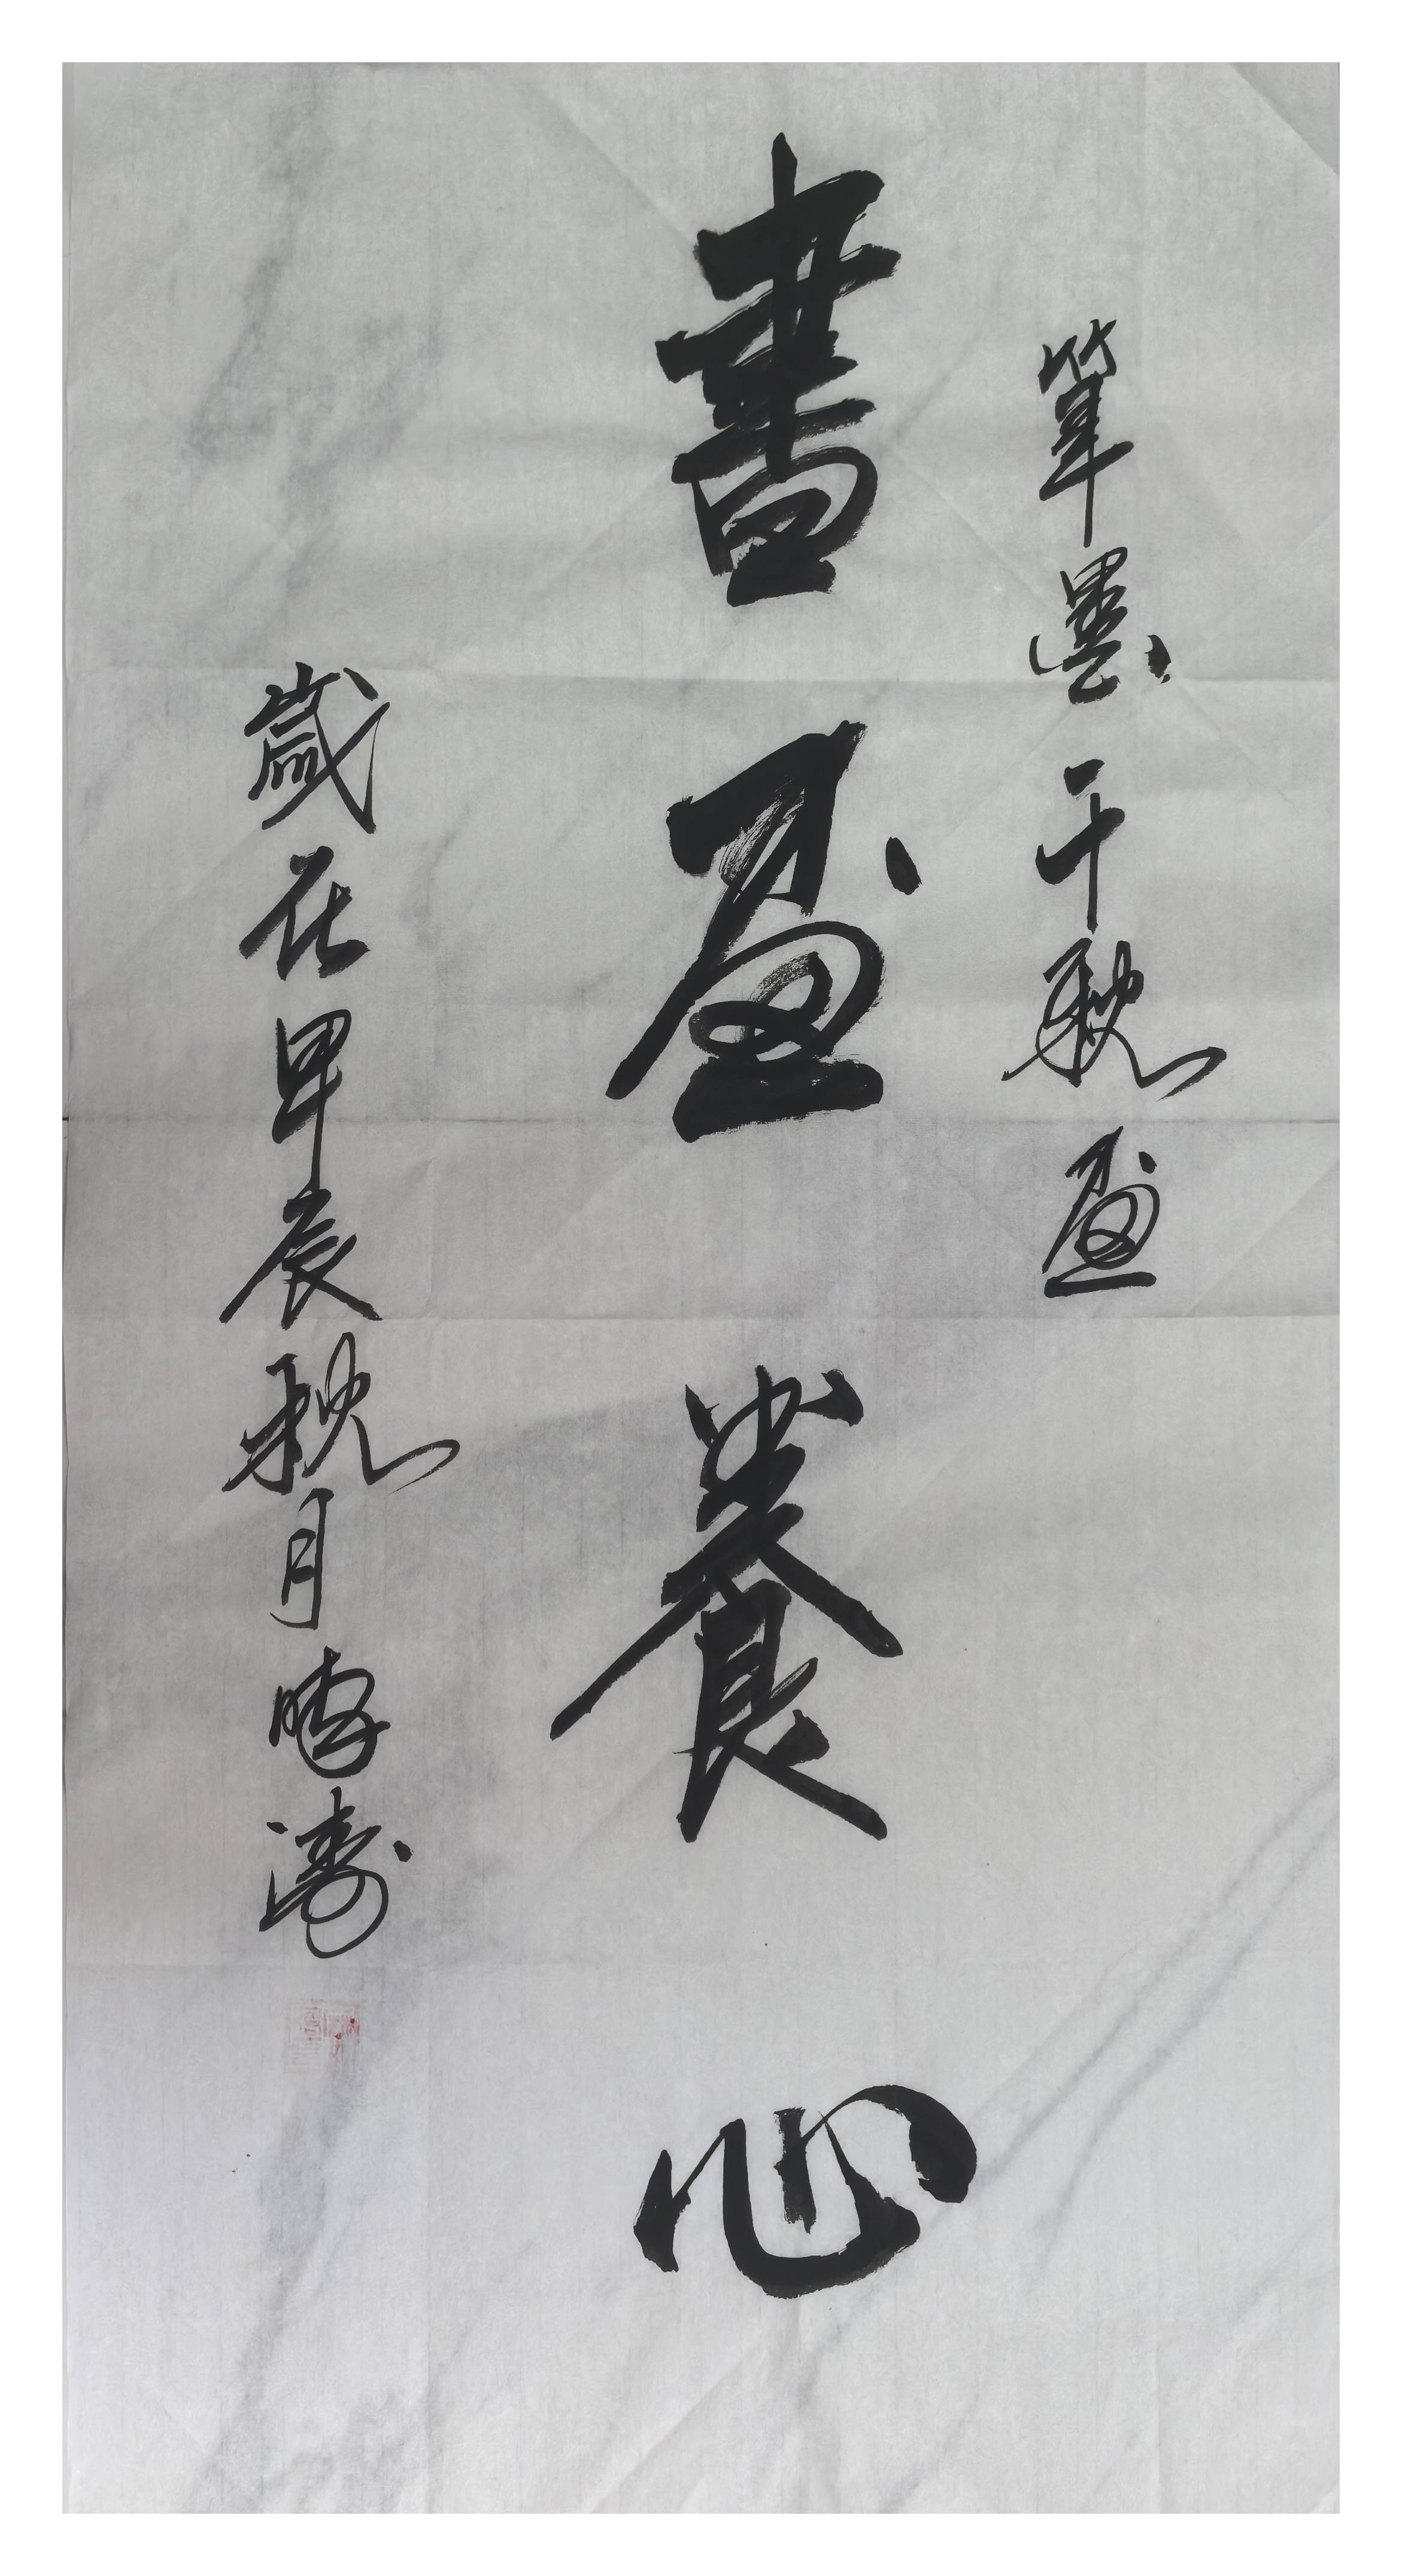 筆墨千秋画
書画養心
歲在甲辰秋月曉濤